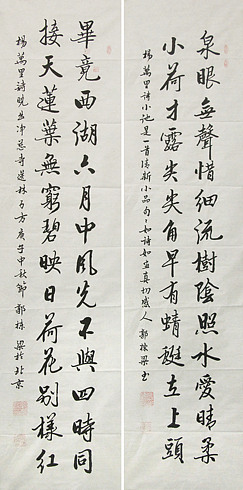 泉眼無聲惜細流樹陰照水愛晴柔
小荷才露尖尖角早有蜻蜓立上頭
楊萬里詩小池是一首清新小品句句如詩如畫真切感人 郭棟梁書
畢竟西湖六月中風光不與四時同
接天蓮葉無窮碧映日荷花别樣紅
楊萬里詩曉出净慈寺送林子方庚子中秋節 郭棟梁於北京